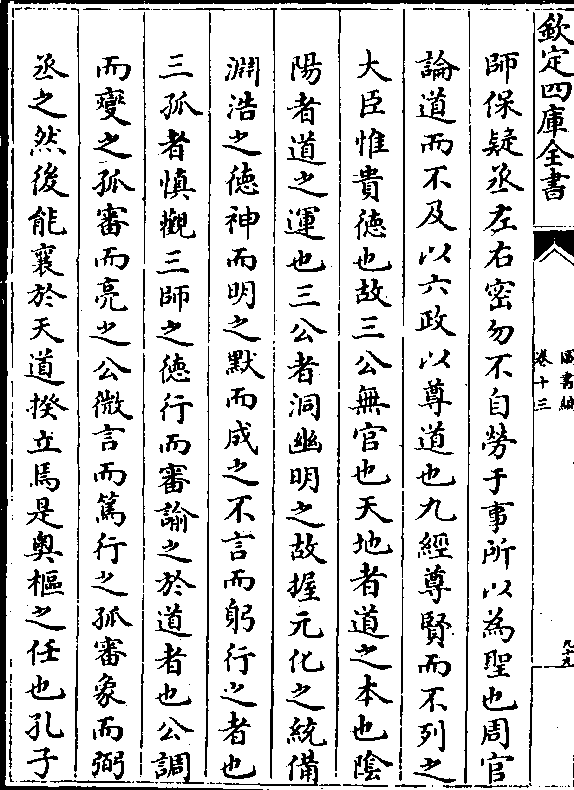 欽定四庫全書
圖書編
卷十三
九十九
師保疑丞左右密勿不自勞于事所以為聖也周官
論道而不及以六政以尊道也九經尊賢而不列之
大臣惟貴德也故三公無官也天地者道之本也陰
陽者道之運也三公者洞幽明之故握元化之統備
淵浩之德神而明之默而成之不言而躬行之者也
三孤者慎觀三師之德行而審諭之於道者也公調
而變之孤審而亮之公微言而篤行之孤審象而弼
丞之然後能襄於天道揆立焉是奥樞之任也孔子